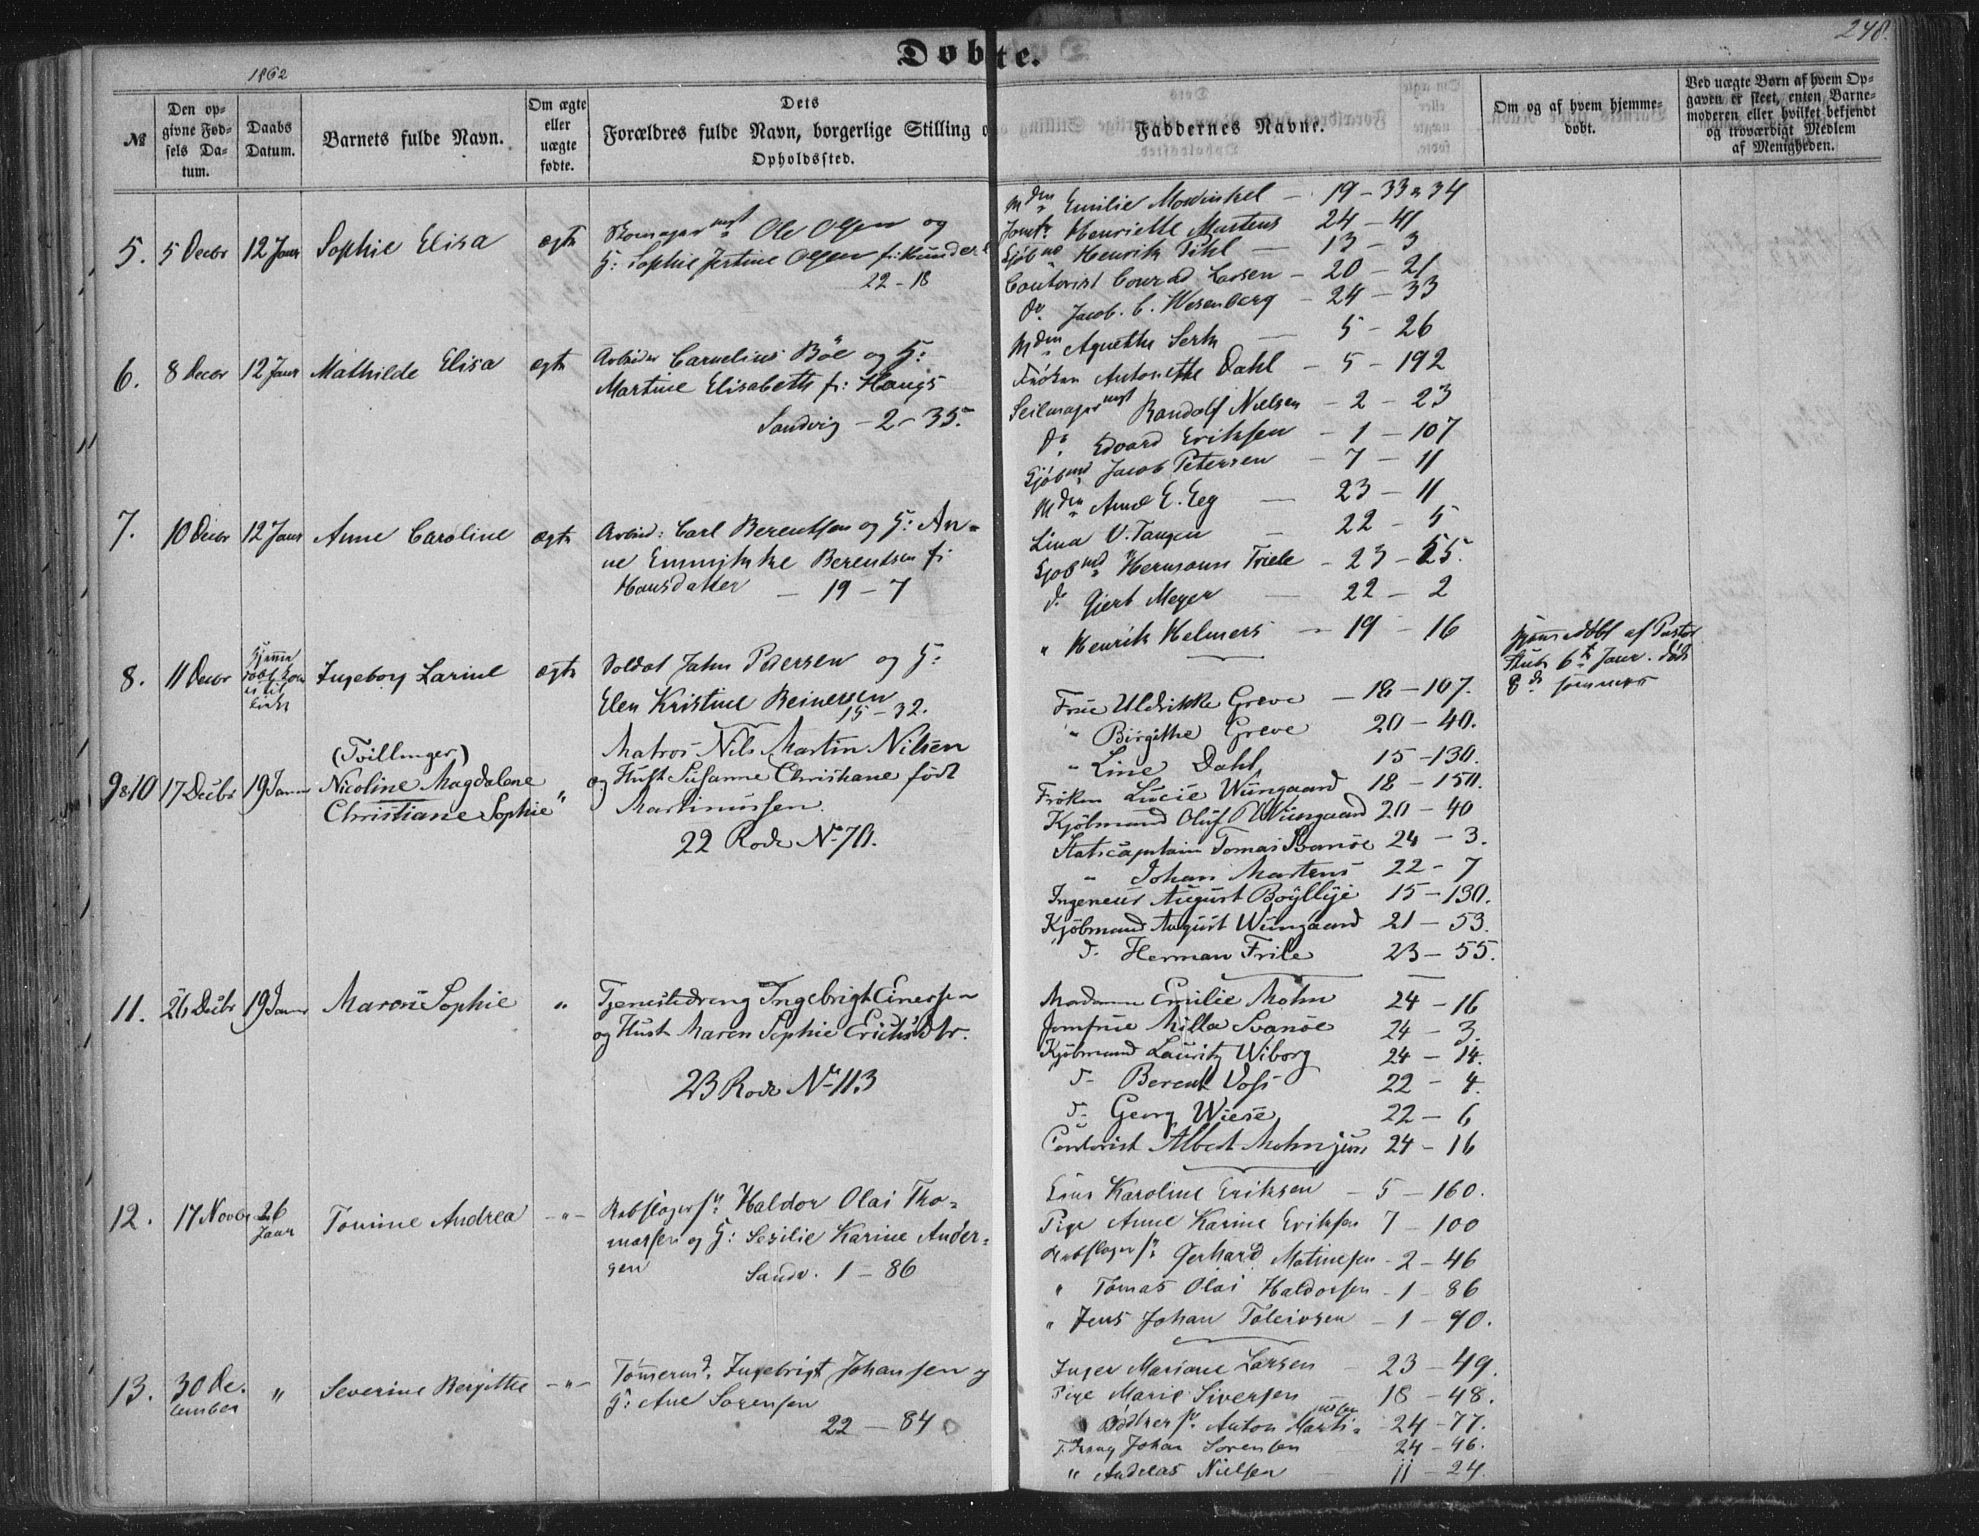 248.
Døbte.
1862
№
Den op-
givne Fød-
sels Da-
tum.
Daabs
Datum.
Barnets fulde Navn.
Om ægte
eller
uægte
fødte.
Dets
Forældres fulde Navn, borgerlige Stilling o
Opholdssted.
Faddernes Navne.
Om og af hvem hjemme-
døbt.
Ved uægte Børn af hvem Op-
gaven er skeet, enten Barne-
moderen eller hvilket bekjendt
og troværdigt Medlem
af Menigheden.
5. 5 Decbr 12 Janr Sophie Elisa ægte
Ole Olsen og
H: Sophie Jertine Olsen f:
22 – 18
Mdm Emilie Mowinkel – 19 – 33 a 34
Jomfr Henriette Martens 24 – 41
Kjøbmd Henrik Pihl – 13 – 3
Contorist Conrad Larsen – 20 – 21
do. Jacob. C. Wesenberg – 24 – 33
6. 8 Decbr 12 Janr Mathilde Elisa ægte
Arbeider Carnelius Böe og H:
Martine Elisabeth f: Haugs
Sandvig – 2 – 35.
Mdm Agnethe – 5 – 26
Frøken Antonette Dahl – 5 – 192
Seilmager Randolf Nielsen – 2 – 23
do Edvard Eriksen – 1 – 107
Kjøbmd Jacob Petersen – 7 – 11
7. 10 Decbr 12 Janr Anne Caroline ægte
Arbeid: Carl Berentsen og H: An-
ne Berentsen f:
Hansdatter – 19 – 7
Mdm Anne E. Eeg – 23 – 11
Lina V. Tangen – 22 – 5
Kjøbmd Hermann Friele – 23 – 55.
do Gjert Meyer – 22 – 2
" Henrik Helmers – 19 – 16
8. 11 Decbr Ingeborg Larine ægte
Soldat Jahn Pedersen og H:
Elen Kristine Reinersen
15 – 32.
Hjemmedøbt af Pastor
6te Janr. død
8de
9&10 17 Decbr 19 Janr
(Tvillinger)
Nicoline Magdalene
Christiane Sophie "
Matros Nils Martin Nilsen
og Hust Susanne Christiane født
Martinussen.
22 Rode No 70.
Frue Uldrikke Greve – 18 – 107.
" Birgithe Greve 20 – 40.
" Line Dahl 15 – 130.
Frøken Lucie Wüngaard 18 – 150.
Kjøbmand Oluf Wüngaard 20 – 40
Skibscaptain Tomas Svanöe 24 – 3.
" Johan Martens 22 – 7
Ingeneur August Böyllye 15 – 130.
Kjøbmand August Wüngaard 21 – 53.
do Herman Friele 23 – 55.
11. 26 Decbr 19 Janr Maren Sophie "
Tjenestedreng Ingebrigt Einersen
og Hust Maren Sophie Erichsdtr.
23 Rode No 113
Madame Emilie Mohn 24 – 16
Jomfrue Milla Svanöe 24 – 3.
Kjøbmand Lauritz Wiborg 24 – 14.
do Berent Voss 22 – 4.
do Georg Wiese 22 – 6
Contorist Albert Mohn jun 24 – 16
12. 17 Novbr 26 Janr Tomine Andrea – " –
Rebslagersv Haldor Olai Tho-
massen og H: Sesilie Karine Ander-
sen Sandv. 1 – 86
Karoline Eriksen – 5 – 160.
Pige Anne Karine Eriksen 7 – 100
Rebslagersv Gerhard – 2 – 46
" Tomas Olai Haldorsen – 1 – 86
" Jens Johan Toleivsen – 1 – 90.
13. 30 De-
cember " Severine Bergitte – " –
Tømermd. Ingebrigt Johansen og
H: Ane Sørensen
22 – 84
Inger Mariane Larsen – 23 – 49.
Pige Marie Siversen – 18 – 48.
Bødkersv. Anton Marti-
nusen 24 – 77.
Johan Sørensen 24 – 46.
" Andreas Nielsen – 11 – 24.